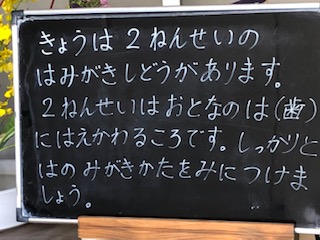 きょうは2ねんせいの
はみがきしどうがあります。
2ねんせいはおとなのは(歯)
にはえかわるころです。しっかりと
はのみがきかたをみにつけま
しょう。